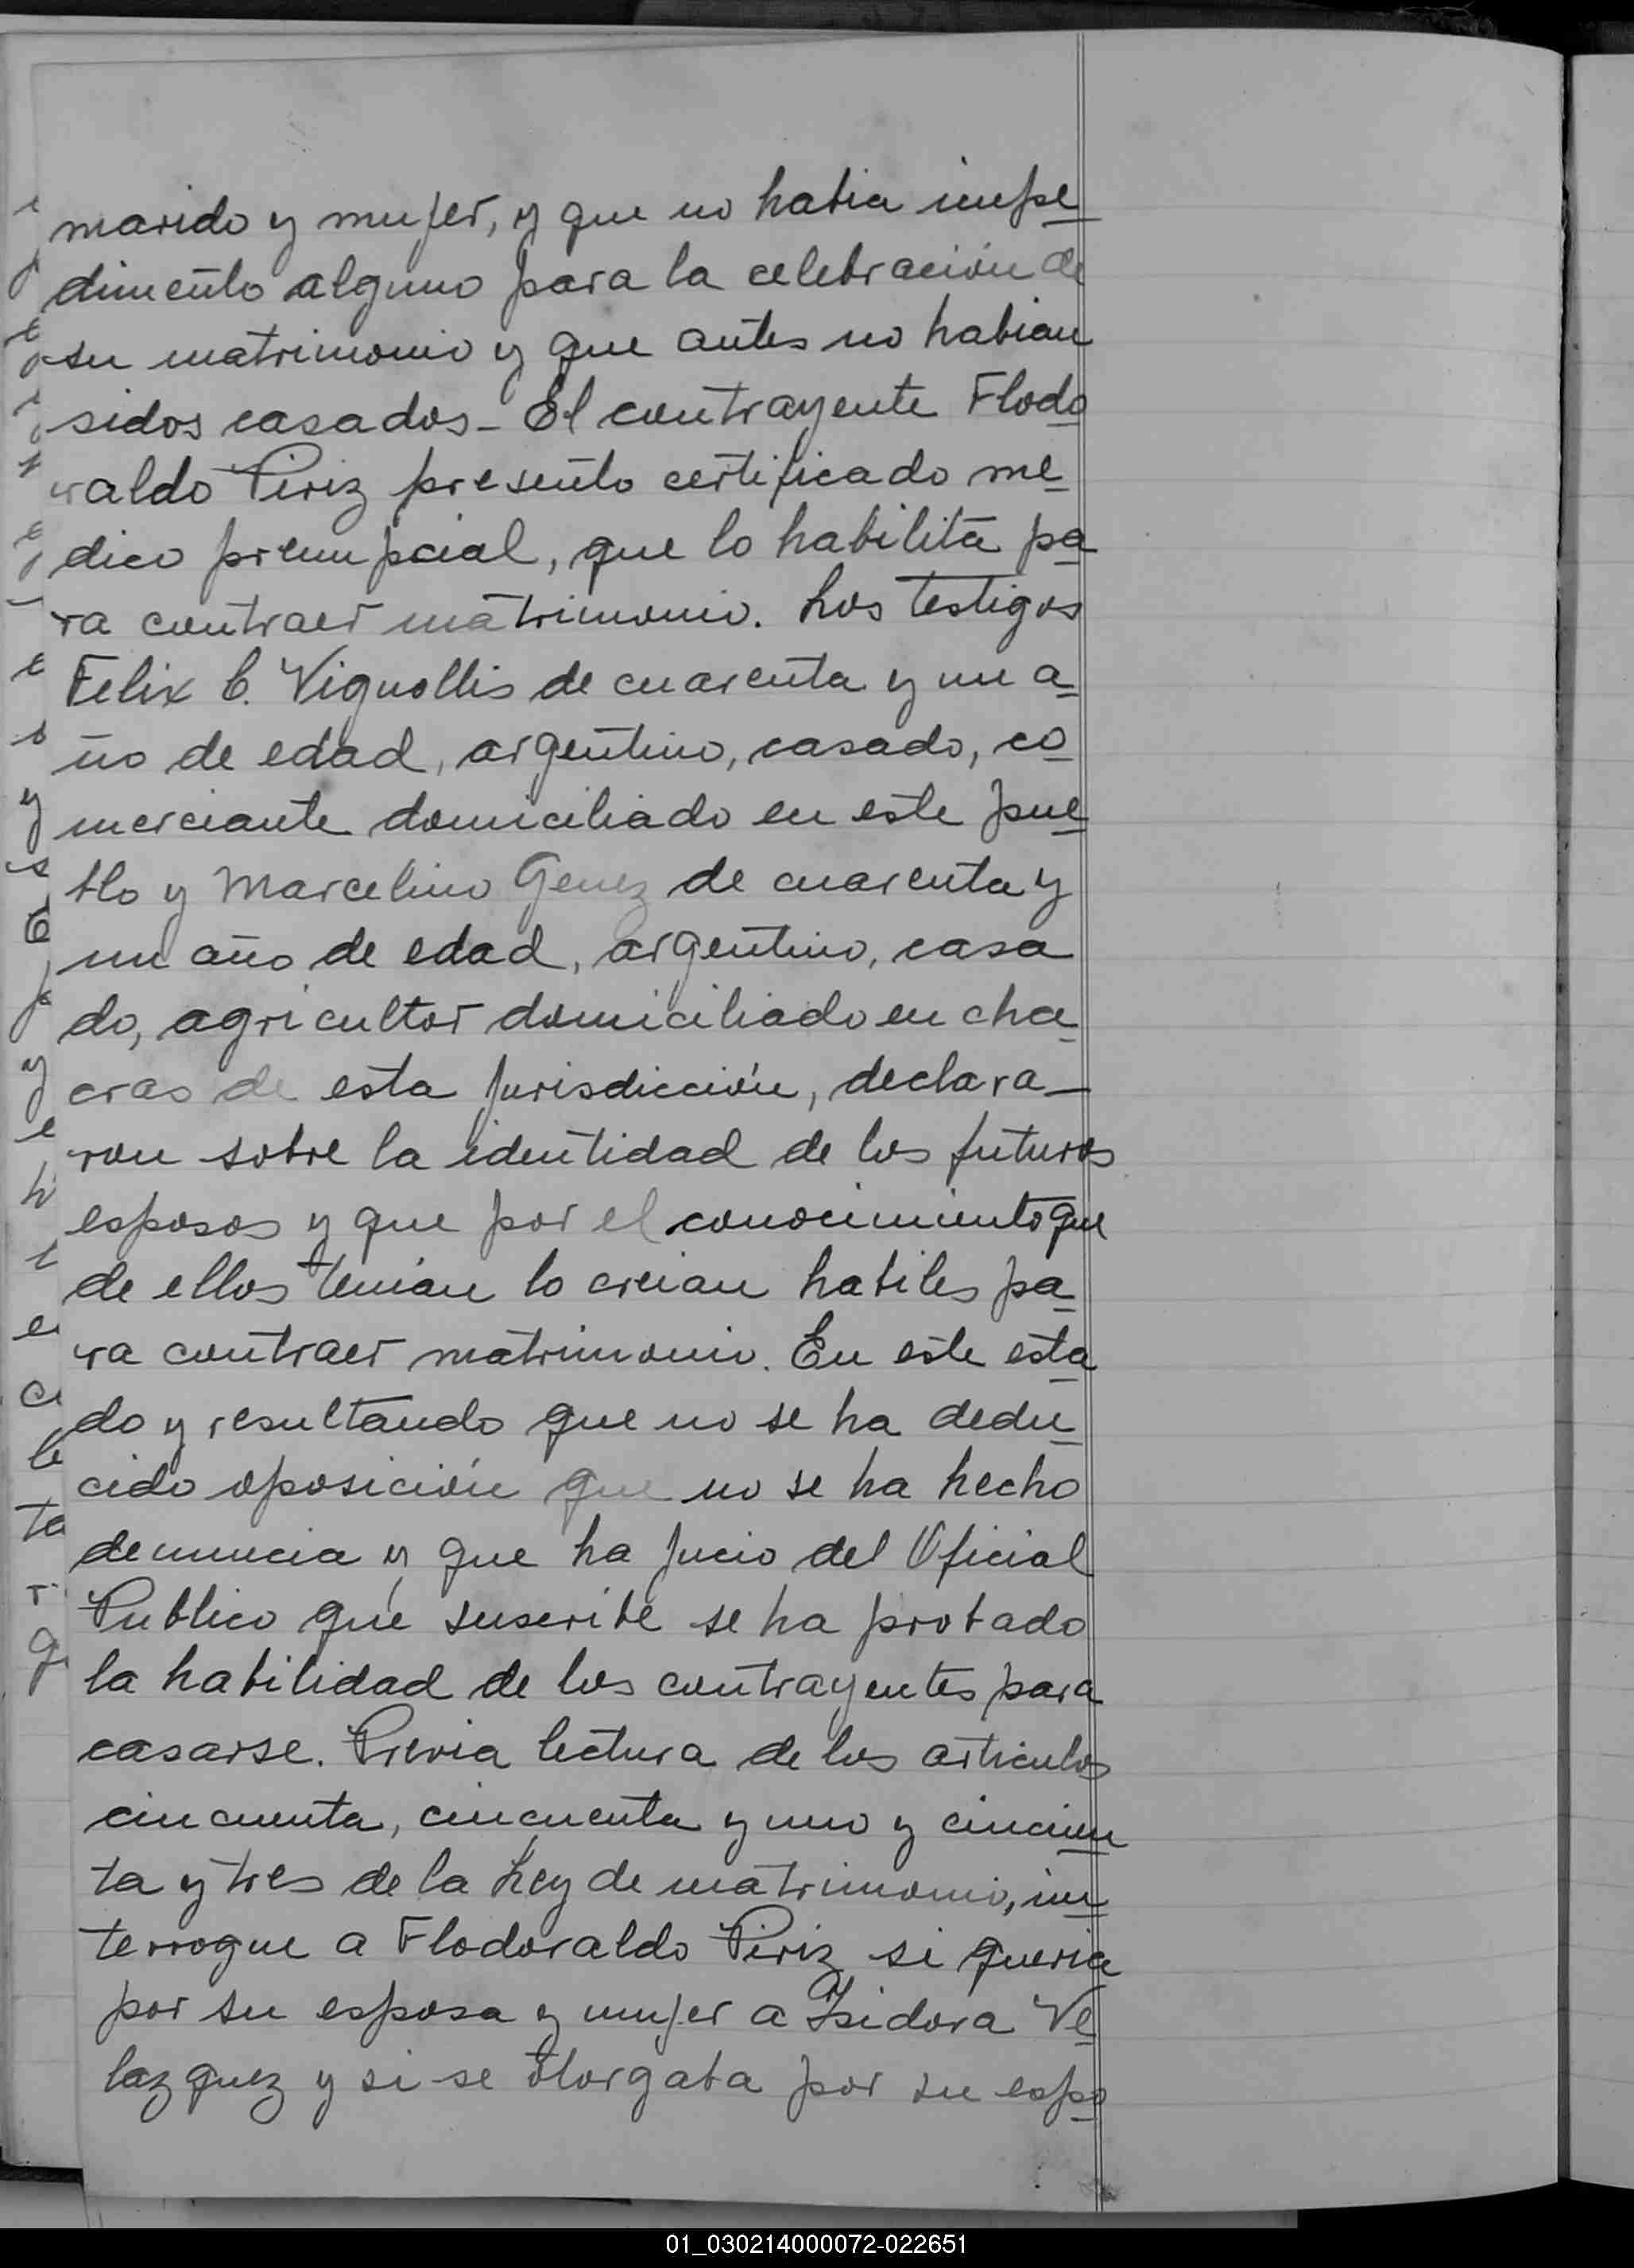 marido y mujer, y que no habia impe
dimento alguno para la celebración de
su matrimonio y que antes no habian
sidos casados - El contrayente Flodo
raldo Piriz presento certificado me
dico prenupcial, que lo habilita pa
ra contraer matrimonio. Los testigos
Felix C. Vignollis de cuarenta y un a
ño de edad, argentino, casado, co
merciante domiciliado en este pue
blo y Marcelino Genez de cuarenta y
un año de edad, argentino, casa
do, agricultor domiciliado en cha
cras de esta jurisdicción, declara-
ron sobre la identidad de los futuros
esposos y que por el conocimiento que
de ellos tenian lo creian habiles pa
ra contraer matrimonio. En este esta
do y resultando que no se ha dedu
cido oposición que no se ha hecho
denuncia y que ha jucio del Oficial
Publico que suscribe se ha probado
la habilidad de los contrayentes para
casarse. Previa lectura de los articulos
cincuenta, cincuenta y uno y cincuen
ta y tres de la Ley de matrimonio, in
terrogue a Flodoraldo Piriz si queria
por su esposa y mujer a Isidora Ve
lazquez y si se otorgaba por su espo
01_030214000072-022651